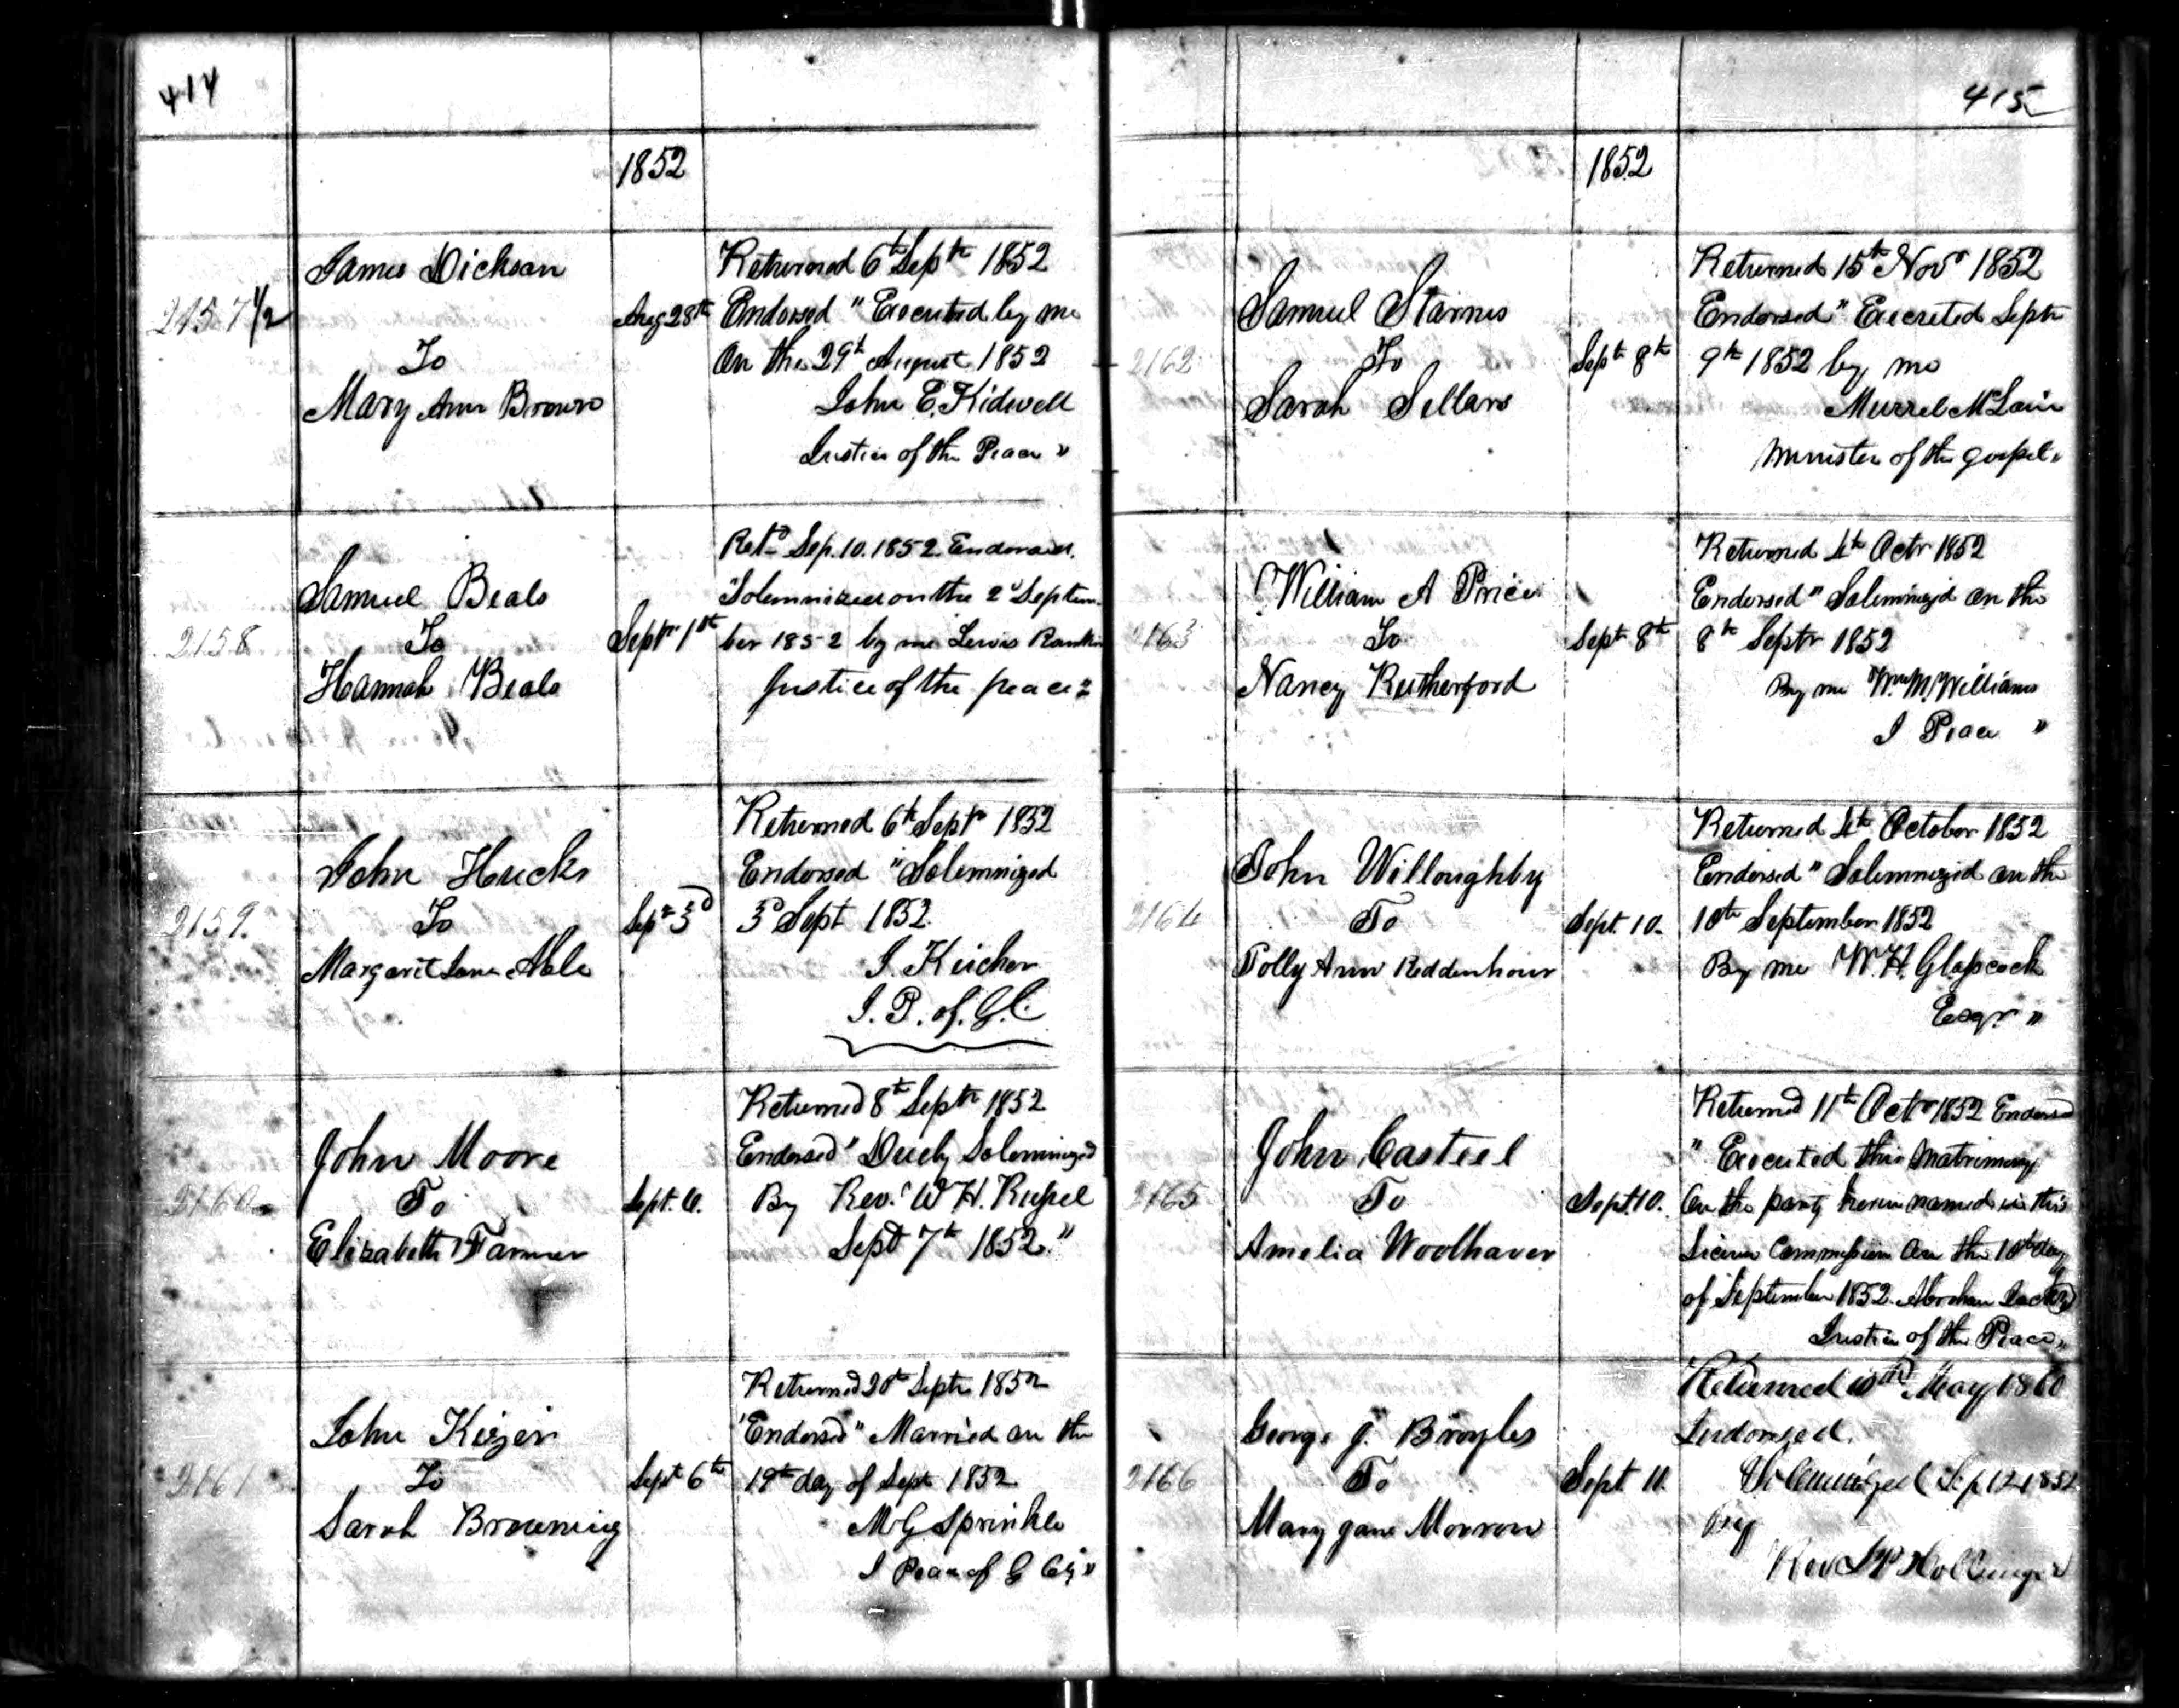 414
1852
2157 1/2
James Dickson
To
Mary Ann Brown
Aug 28th
Returned 6th Septr 1852
Endorsed "Executed by me
On the 29th August 1852
John E. Kidwell
Justice of the Peace"
2158
Samuel Beals
To
Hannah Beals
Septr 1st
Retd Sep. 10. 1852. Endorsed.
"Solemnized on the 2d Septem-
ber 1852 by me Lewis Rankin
Justice of the peace"
2159.
John Hucks
To
Margaret Jane Able
Sept 3d
Returned 6th Septr 1852
Endorsed "Solemnized
3d Sept 1852.
J. Keicher
J. P. of. G. C.
2160
John Moore
To
Elizabeth Farner
Sept. 6.
Returned 8th Septr 1852
Endorsed "Duely Solemnized
By Rev. W H. Rupel
Sept 7th 1852."
2161
John Kizer
To
Sarah Browning
Sept 6th
Returned 20th Septr 1852
Endorsed "Married on the
19th day of Sept 1852
M G Sprinkle
J Peace of G Cty"
415
1852
2162
Samuel Starnes
To
Sarah Sellars
Sept 8th
Returned 15th Novr 1852
Endorsed "Executed Septr
9th 1852 by me
Murrel McLain
minister of the gospel"
2163
William A Price
To
Nancy Rutherford
Sept 8th
Returned 4th Octr 1852
Endorsed "Solemnizd on the
8th Septr 1852
By me Wm M. Williams
J Peace "
2164
John Willoughby
To
Polly Ann Reddenhour
Sept. 10.
Returned 4th October 1852
Endorsed "Solemnizid on the
10th September 1852
By me W. H. Glasscock
Esqr "
2165
John Casteel
To
Amelia Woolhaver
Sept. 10.
Returned 11th Octr 1852 Endorsed
" Executed this matrimony
On the party herein named in this
Licens Commission On the 10th day
of September 1852. Abraham
Justice of the Peace"
2166
George J. Broyles
To
Mary Jane Morrow
Sept. 11.
Returned May 1860
Indorsed.
Solemnized Sep 12 1852
By
Rev